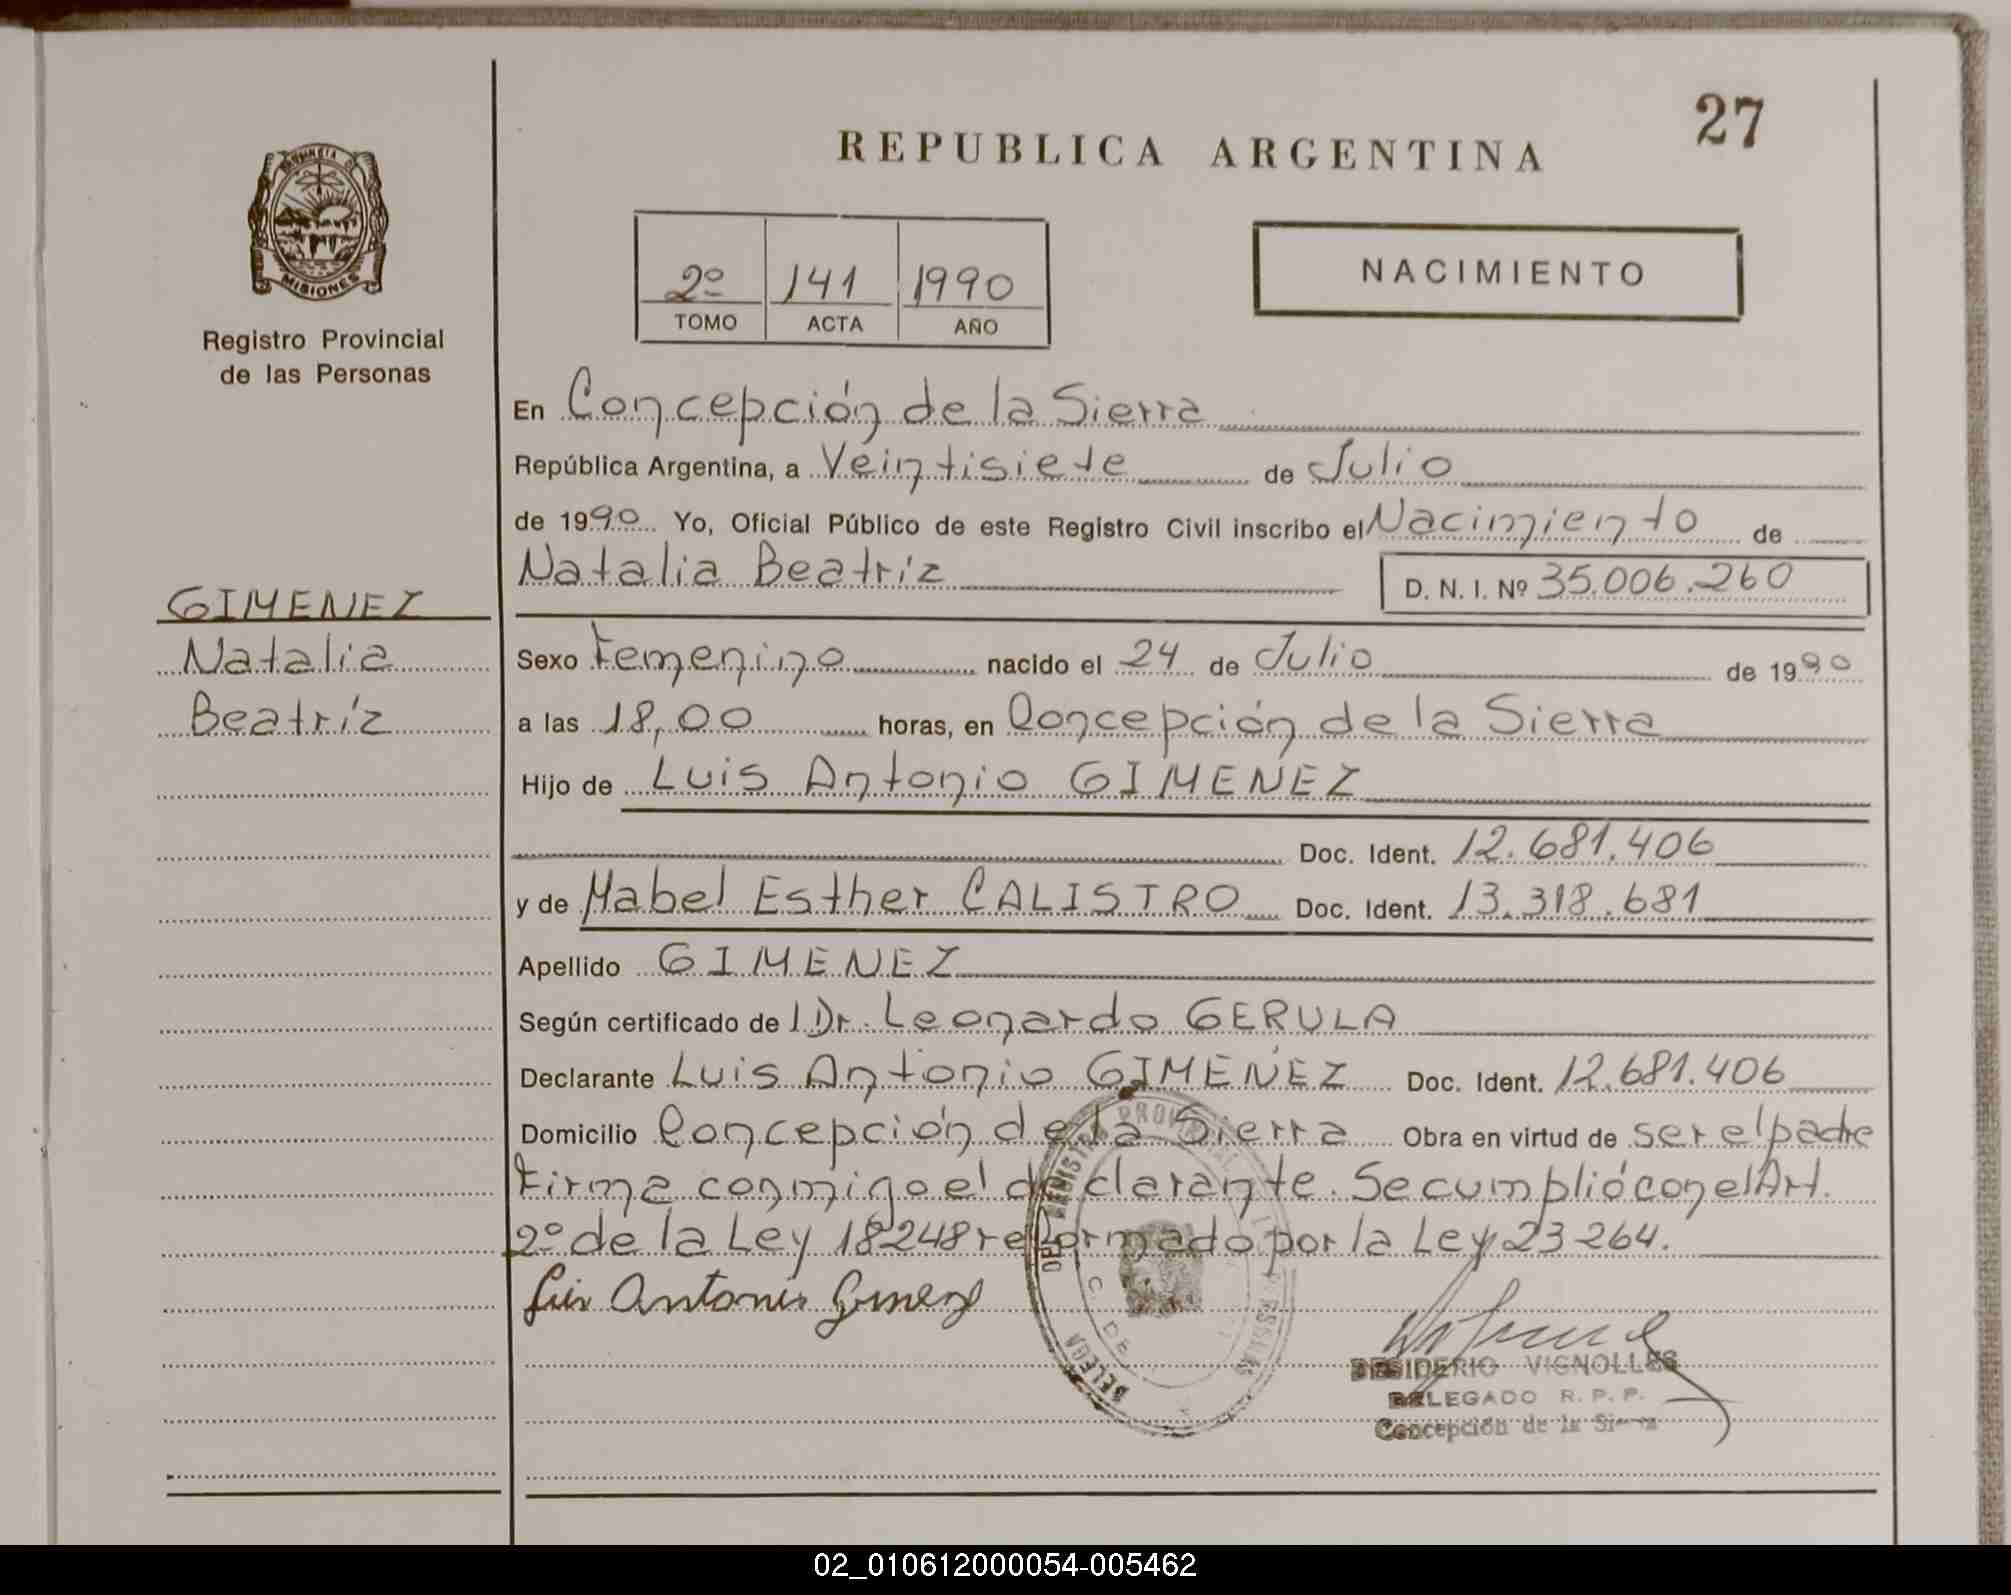 27
REPUBLICA ARGENTINA
PROVINCIA DE
MISIONES
Registro Provincial
de las Personas
2º 141 1990
TOMO ACTA AÑO
NACIMIENTO
En Concepción de la Sierra
República Argentina, a Veintisiete de Julio
de 1990 Yo, Oficial Público de este Registro Civil inscribo el Nacimiento de
Natalia Beatríz D. N. I. Nº 35.006.260
GIMENEZ
Natalia
Beatríz
Sexo Femenino nacido el 24 de Julio de 1990
a las 18,00 horas, en Concepción de la Sierra
Hijo de Luis Antonio GIMENEZ
Doc. Ident. 12.681.406
y de Mabel Esther CALISTRO Doc. Ident. 13.318.681
Apellido GIMENEZ
Según certificado de Dr. Leonardo GERULA
Declarante Luis Antonio GIMENEZ Doc. Ident. 12.681.406
Domicilio Concepción de la Sierra Obra en virtud de ser el padre
Firma conmigo el declarante. Se cumplió con el Art.
2º de la Ley 18248 reformado por la Ley 23264.
Luis Antonio Gimenez
DESIDERIO VIGNOLLES
DELEGADO R. P. P.
Concepción de la Sierra
02_010612000054-005462